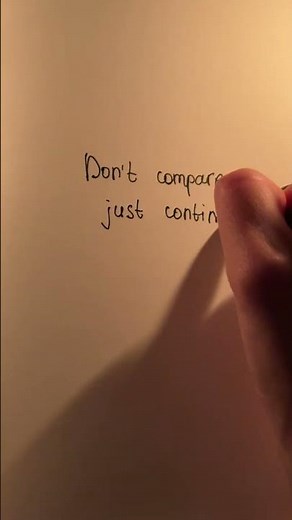 Don't compare
just contin